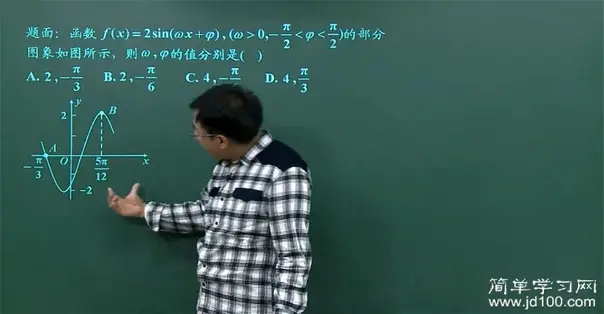 题面：函数 f(x)=2sin(ωx+φ),(ω>0,-π/2<φ<π/2)的部分
图象如图所示，则ω,φ的值分别是( )
A. 2,-π/3 B. 2,-π/6 C. 4,-π D. 4,π/3
y
2
B
A
O
x
-π/3
5π/12
-2
简单学习网
www.jd100.com